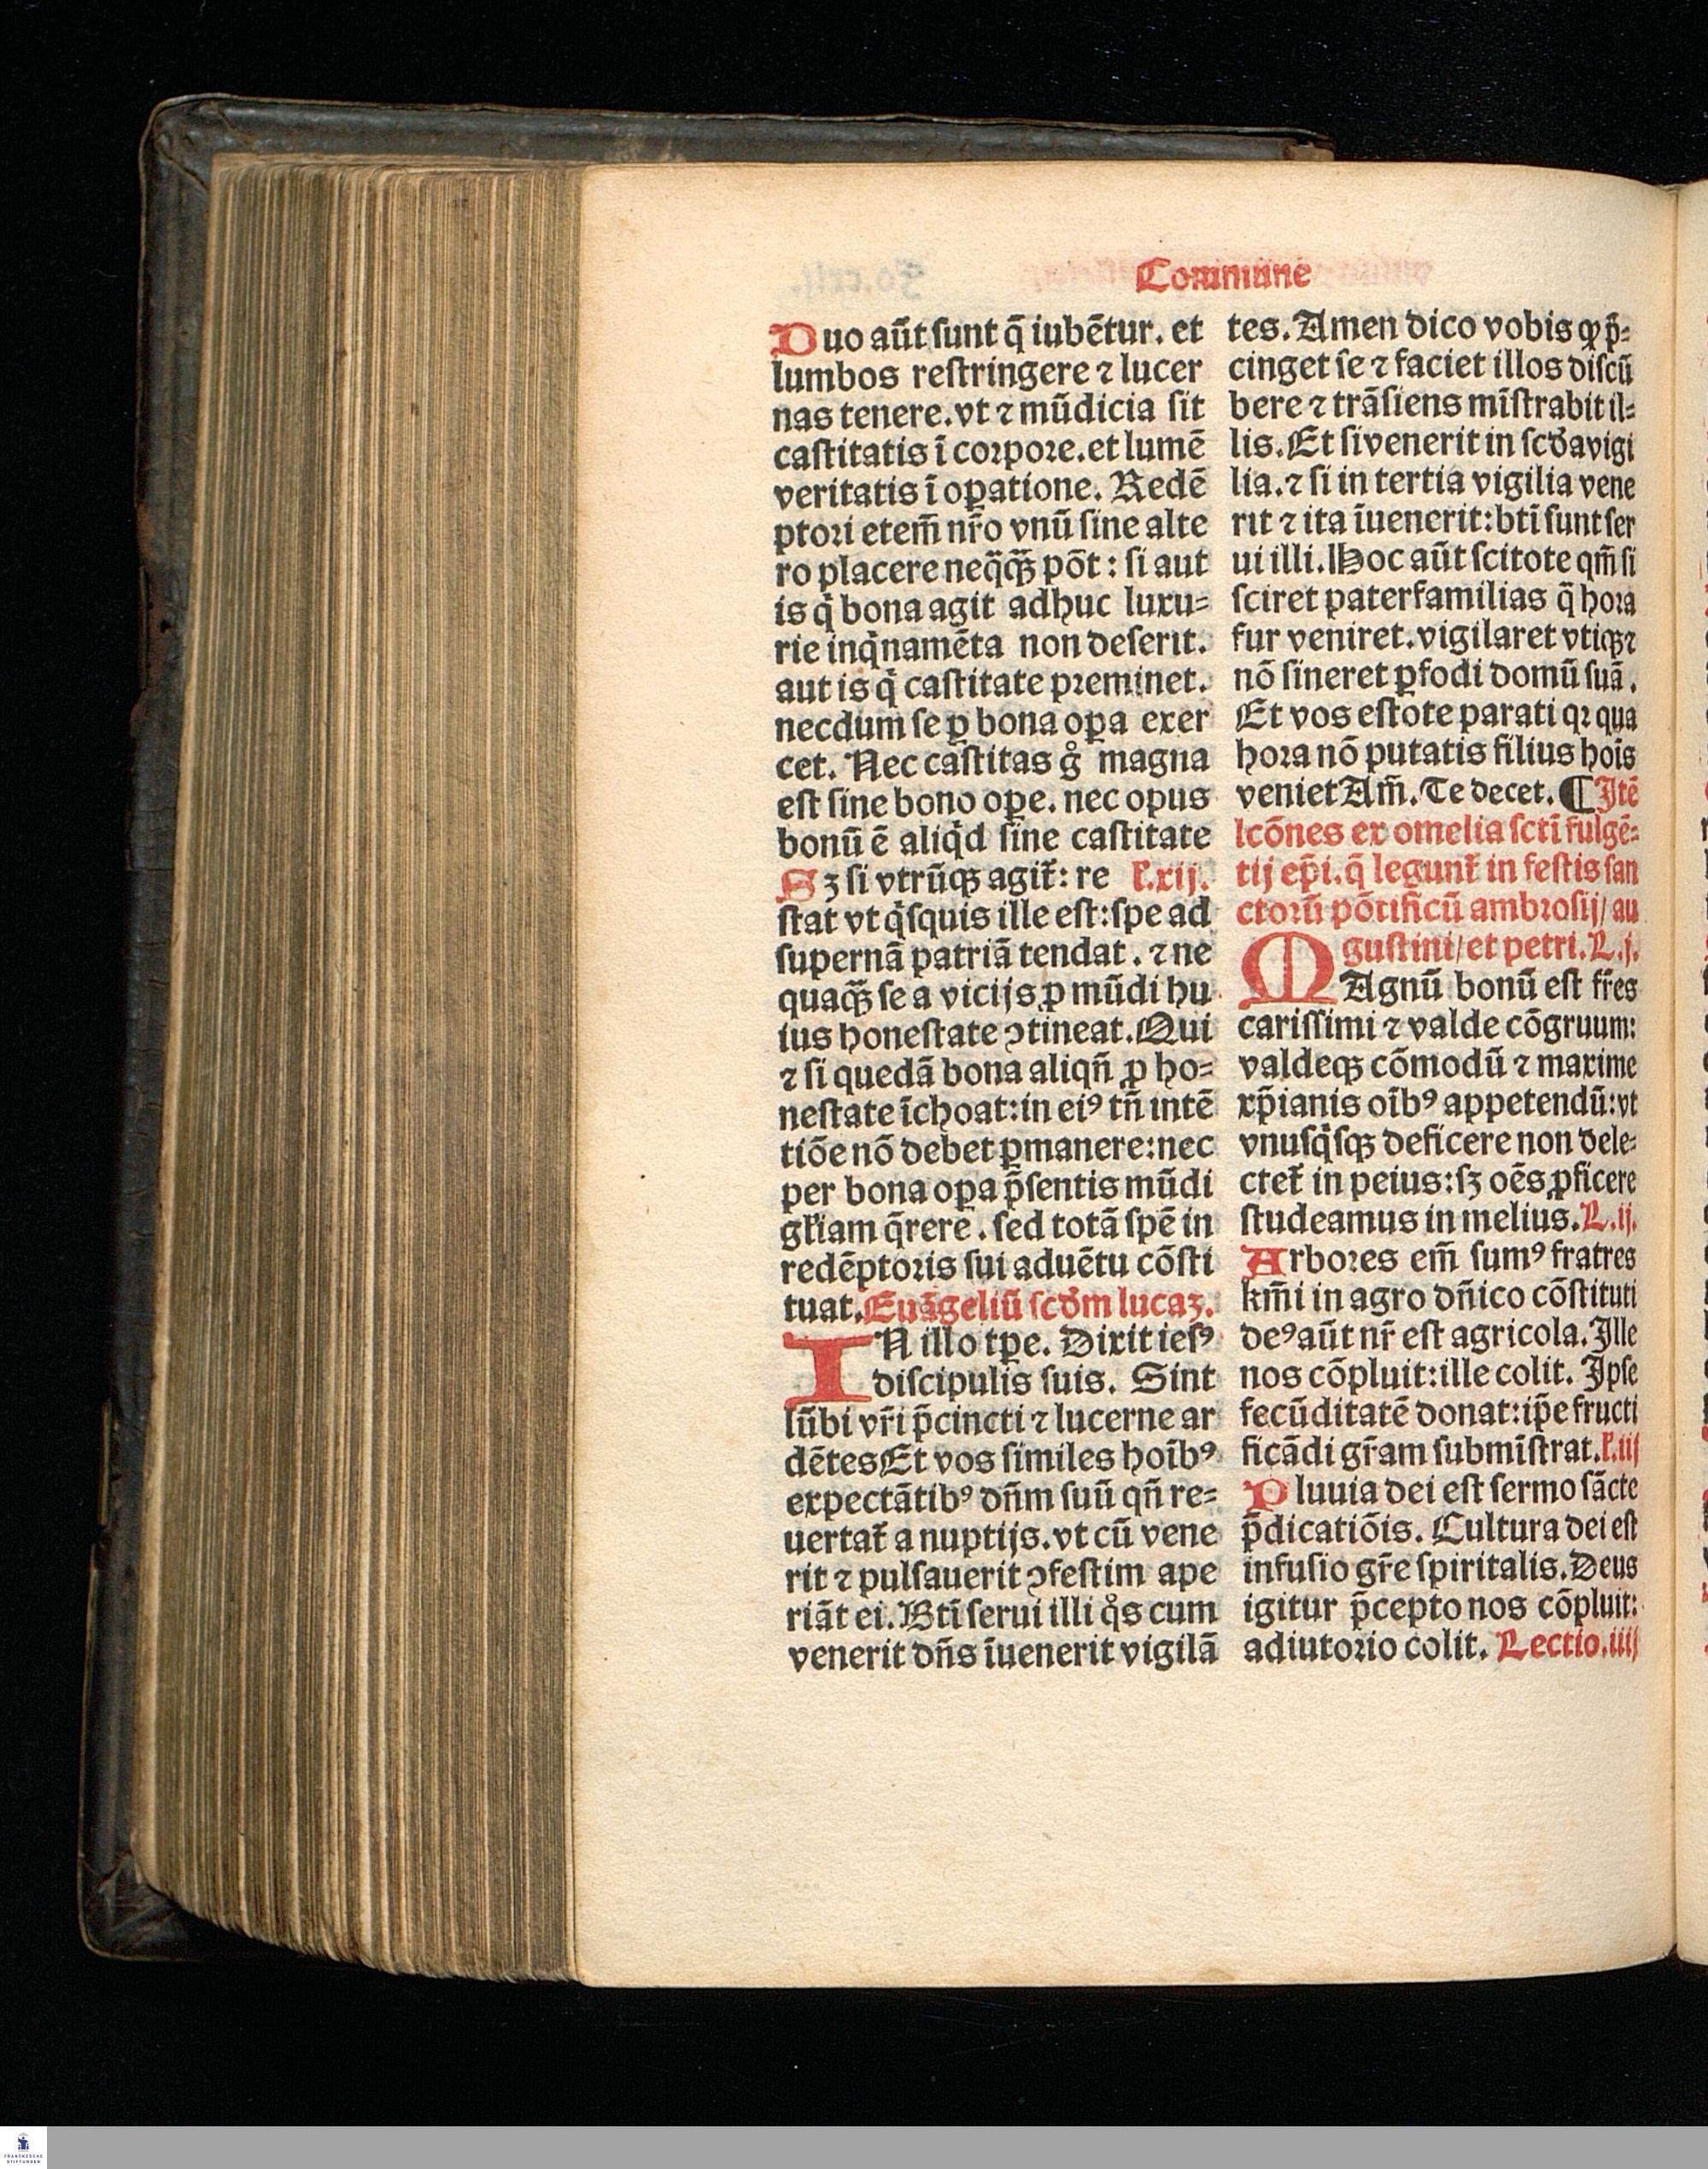 Commune
Duo aūt sunt q̄ iubētur. et
lumbos restringere ⁊ lucer
nas tenere. vt ⁊ mūdicia sit
castitatis ī corpore. et lumē
veritatis ī oꝑatione. Redē
ptori etem̄ nr̄o vnū sine alte
ro placere neq̄q̄ꝫ pōt : si aut
is qͥ bona agit adhuc luxu⸗
rie inqͥnamēta non deserit.
aut is qͥ castitate preminet.
necdum se ꝑ bona oꝑa exer
cet. Nec castitas gͦ magna
est sine bono oꝑe. nec opus
bonū ē aliqͥd sine castitate
Sꝫ si vtrūqꝫ agit̄: re l̄.xij.
stat vt qͥsquis ille est: spe ad
supernā patriā tendat. ⁊ ne
quaq̄ꝫ se a vicijs ꝓ mūdi hu
ius honestate ꝯtineat. Qui
⁊ si quedā bona aliqn̄ ꝓ ho⸗
nestate īchoat: in eiꝰ tn̄ intē
tiōe nō debet ꝑmanere: nec
per bona oꝑa p̄sentis mūdi
gl̄iam q̄rere. sed totā spē in
redēptoris sui aduētu cōsti
tuat. Euāgeliū scd̄m lucaꝫ.
IN illo tꝑe. Dixit iesꝰ
discipulis suis. Sint
lūbi vr̄i p̄cincti ⁊ lucerne ar
dētes Et vos similes hoībꝰ
expectātibꝰ dn̄m suū qn̄ re⸗
uertat̄ a nuptijs. vt cū vene
rit ⁊ pulsauerit ꝯfestim ape
riāt ei. Btī serui illi qͦs cum
venerit dn̄s īuenerit vigilā
tes. Amen dico vobis ꝙ p̄⸗
cinget se ⁊ faciet illos discū
bere ⁊ trāsiens mīstrabit il⸗
lis. Et si venerit in scd̄a vigi
lia. ⁊ si in tertia vigilia vene
rit ⁊ ita īuenerit: btī sunt ser
ui illi. Hoc aūt scitote qm̄ si
sciret paterfamilias q̄ hora
fur veniret. vigilaret vtiqꝫ ⁊
nō sineret ꝑfodi domū suā.
Et vos estote parati qꝛ qua
hora nō putatis filius hoīs
veniet Am̄. Te decet. ¶ Itē
lcōnes ex omelia sctī fulgē⸗
tij ep̄i. q̄ legunt̄ in festis san
ctorū pōtificū ambrosij/ au
gustini/ et petri. L.j.
MAgnū bonū est fr̄es
carissimi ⁊ valde cōgruum:
valdeqꝫ cōmodū ⁊ maxime
xp̄ianis oībꝰ appetendū: vt
vnusqͥsqꝫ deficere non dele⸗
ctet̄ in peius: sꝫ oēs ꝓficere
studeamus in melius. L.ij.
Arbores em̄ sumꝰ fratres
km̄i in agro dn̄ico cōstituti
deꝰ aūt nr̄ est agricola. Ille
nos cōpluit: ille colit. Ipse
fecūditatē donat: ip̄e fructi
ficādi gr̄am submīstrat. l̄.iij
Pluuia dei est sermo sācte
p̄dicatiōis. Cultura dei est
infusio gr̄e spiritalis. Deus
igitur p̄cepto nos cōpluit:
adiutorio colit. Lectio.iiij
FRANCKESCHE
STIFTUNGEN